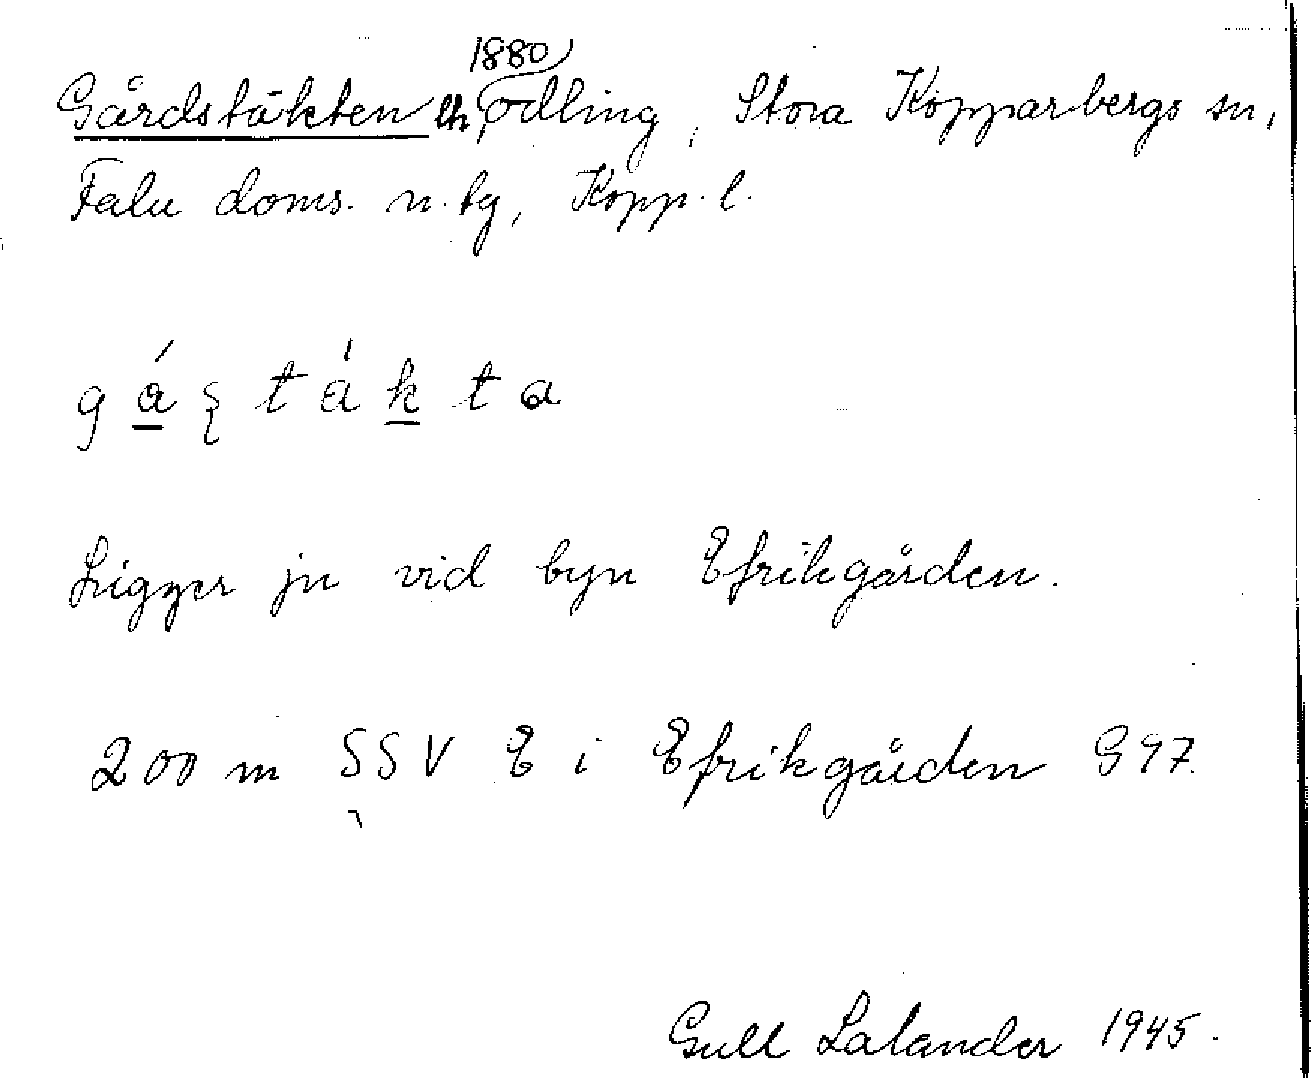 1880
Gårdstäkten lh, odling, Stora Kopparbergs sn,
Falu doms. n. tg, Kopp. l.
g á ʂ t á k t a
Ligger ju vid byn Efrikgården.
200 m SSV E i Efrikgården G97.
Gull Lalander 1945.